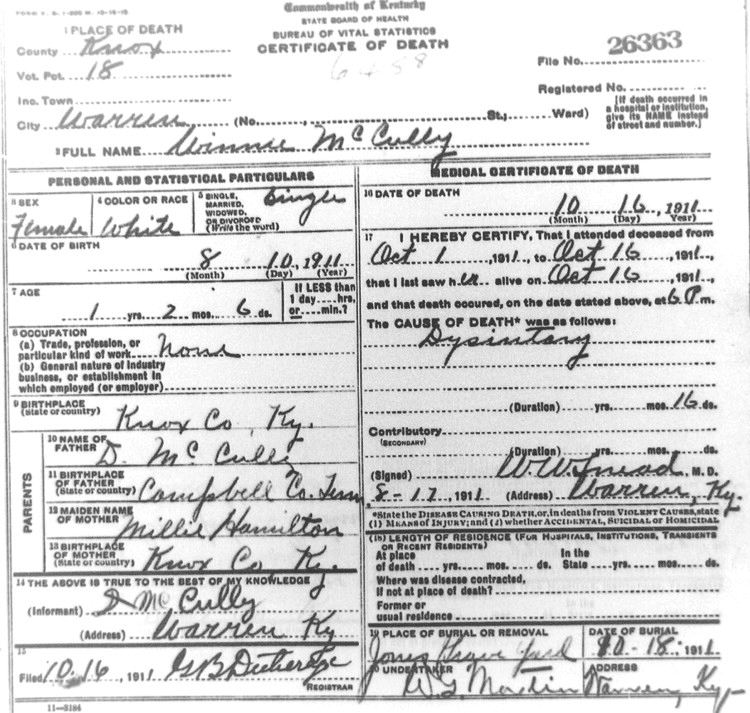 FORM V. S. 1-200 M. 10-16-10
Commonwealth of Kentucky
STATE BOARD OF HEALTH
BUREAU OF VITAL STATISTICS
CERTIFICATE OF DEATH
1 PLACE OF DEATH
County Knox
Vot. Pct. 18
Inc. Town
City Warren (No. St.; Ward)
File No. 26363
Registered No.
(If death occurred in a hospital or institution, give its NAME instead of street and number.)
2 FULL NAME Winnie McCully
PERSONAL AND STATISTICAL PARTICULARS
3 SEX Female
4 COLOR OR RACE White
5 SINGLE, MARRIED, WIDOWED, OR DIVORCED (Write the word) Single
6 DATE OF BIRTH
8 10, 1911
(Month) (Day) (Year)
7 AGE
1 yrs. 2 mos. 6 ds.
If LESS than 1 day....hrs, or....min.?
8 OCCUPATION
(a) Trade, profession, or
particular kind of work None
(b) General nature of Industry
business, or establishment in
which employed (or employer)
9 BIRTHPLACE
(State or country) Knox Co, Ky.
PARENTS
10 NAME OF FATHER D. McCully
11 BIRTHPLACE OF FATHER (State or country) Campbell Co. Tenn
12 MAIDEN NAME OF MOTHER Millie Hamilton
13 BIRTHPLACE OF MOTHER (State or country) Knox Co Ky.
14 THE ABOVE IS TRUE TO THE BEST OF MY KNOWLEDGE
(Informant) D McCully
(Address) Warren Ky
15
Filed 10.16, 1911 REGISTRAR
11-3184
MEDICAL CERTIFICATE OF DEATH
16 DATE OF DEATH
10 16, 1911
(Month) (Day) (Year)
17 I HEREBY CERTIFY, That I attended deceased from
Oct 1, 1911, to Oct 16, 1911,
that I last saw her alive on Oct 16, 1911,
and that death occured, on the date stated above, at 6 P m.
The CAUSE OF DEATH* was as follows:
Dysintary
(Duration) yrs. mos. 16 ds.
Contributory
(SECONDARY)
(Duration) yrs. mos. ds.
(Signed) M. D.
8-17, 1911 (Address) Warren, Ky.
*State the DISEASE CAUSING DEATH, or, in deaths from VIOLENT CAUSES, state
(1) MEANS OF INJURY; and (2) whether ACCIDENTAL, SUICIDAL OR HOMICIDAL
(18) LENGTH OF RESIDENCE (FOR HOSPITALS, INSTITUTIONS, TRANSIENTS
OR RECENT RESIDENTS)
At place of death yrs. mos. ds. In the State yrs. mos. ds.
Where was disease contracted,
If not at place of death?
Former or
usual residence
19 PLACE OF BURIAL OR REMOVAL Jones Grave Yard
DATE OF BURIAL 10-18-1911
UNDERTAKER
ADDRESS Warren, Ky-